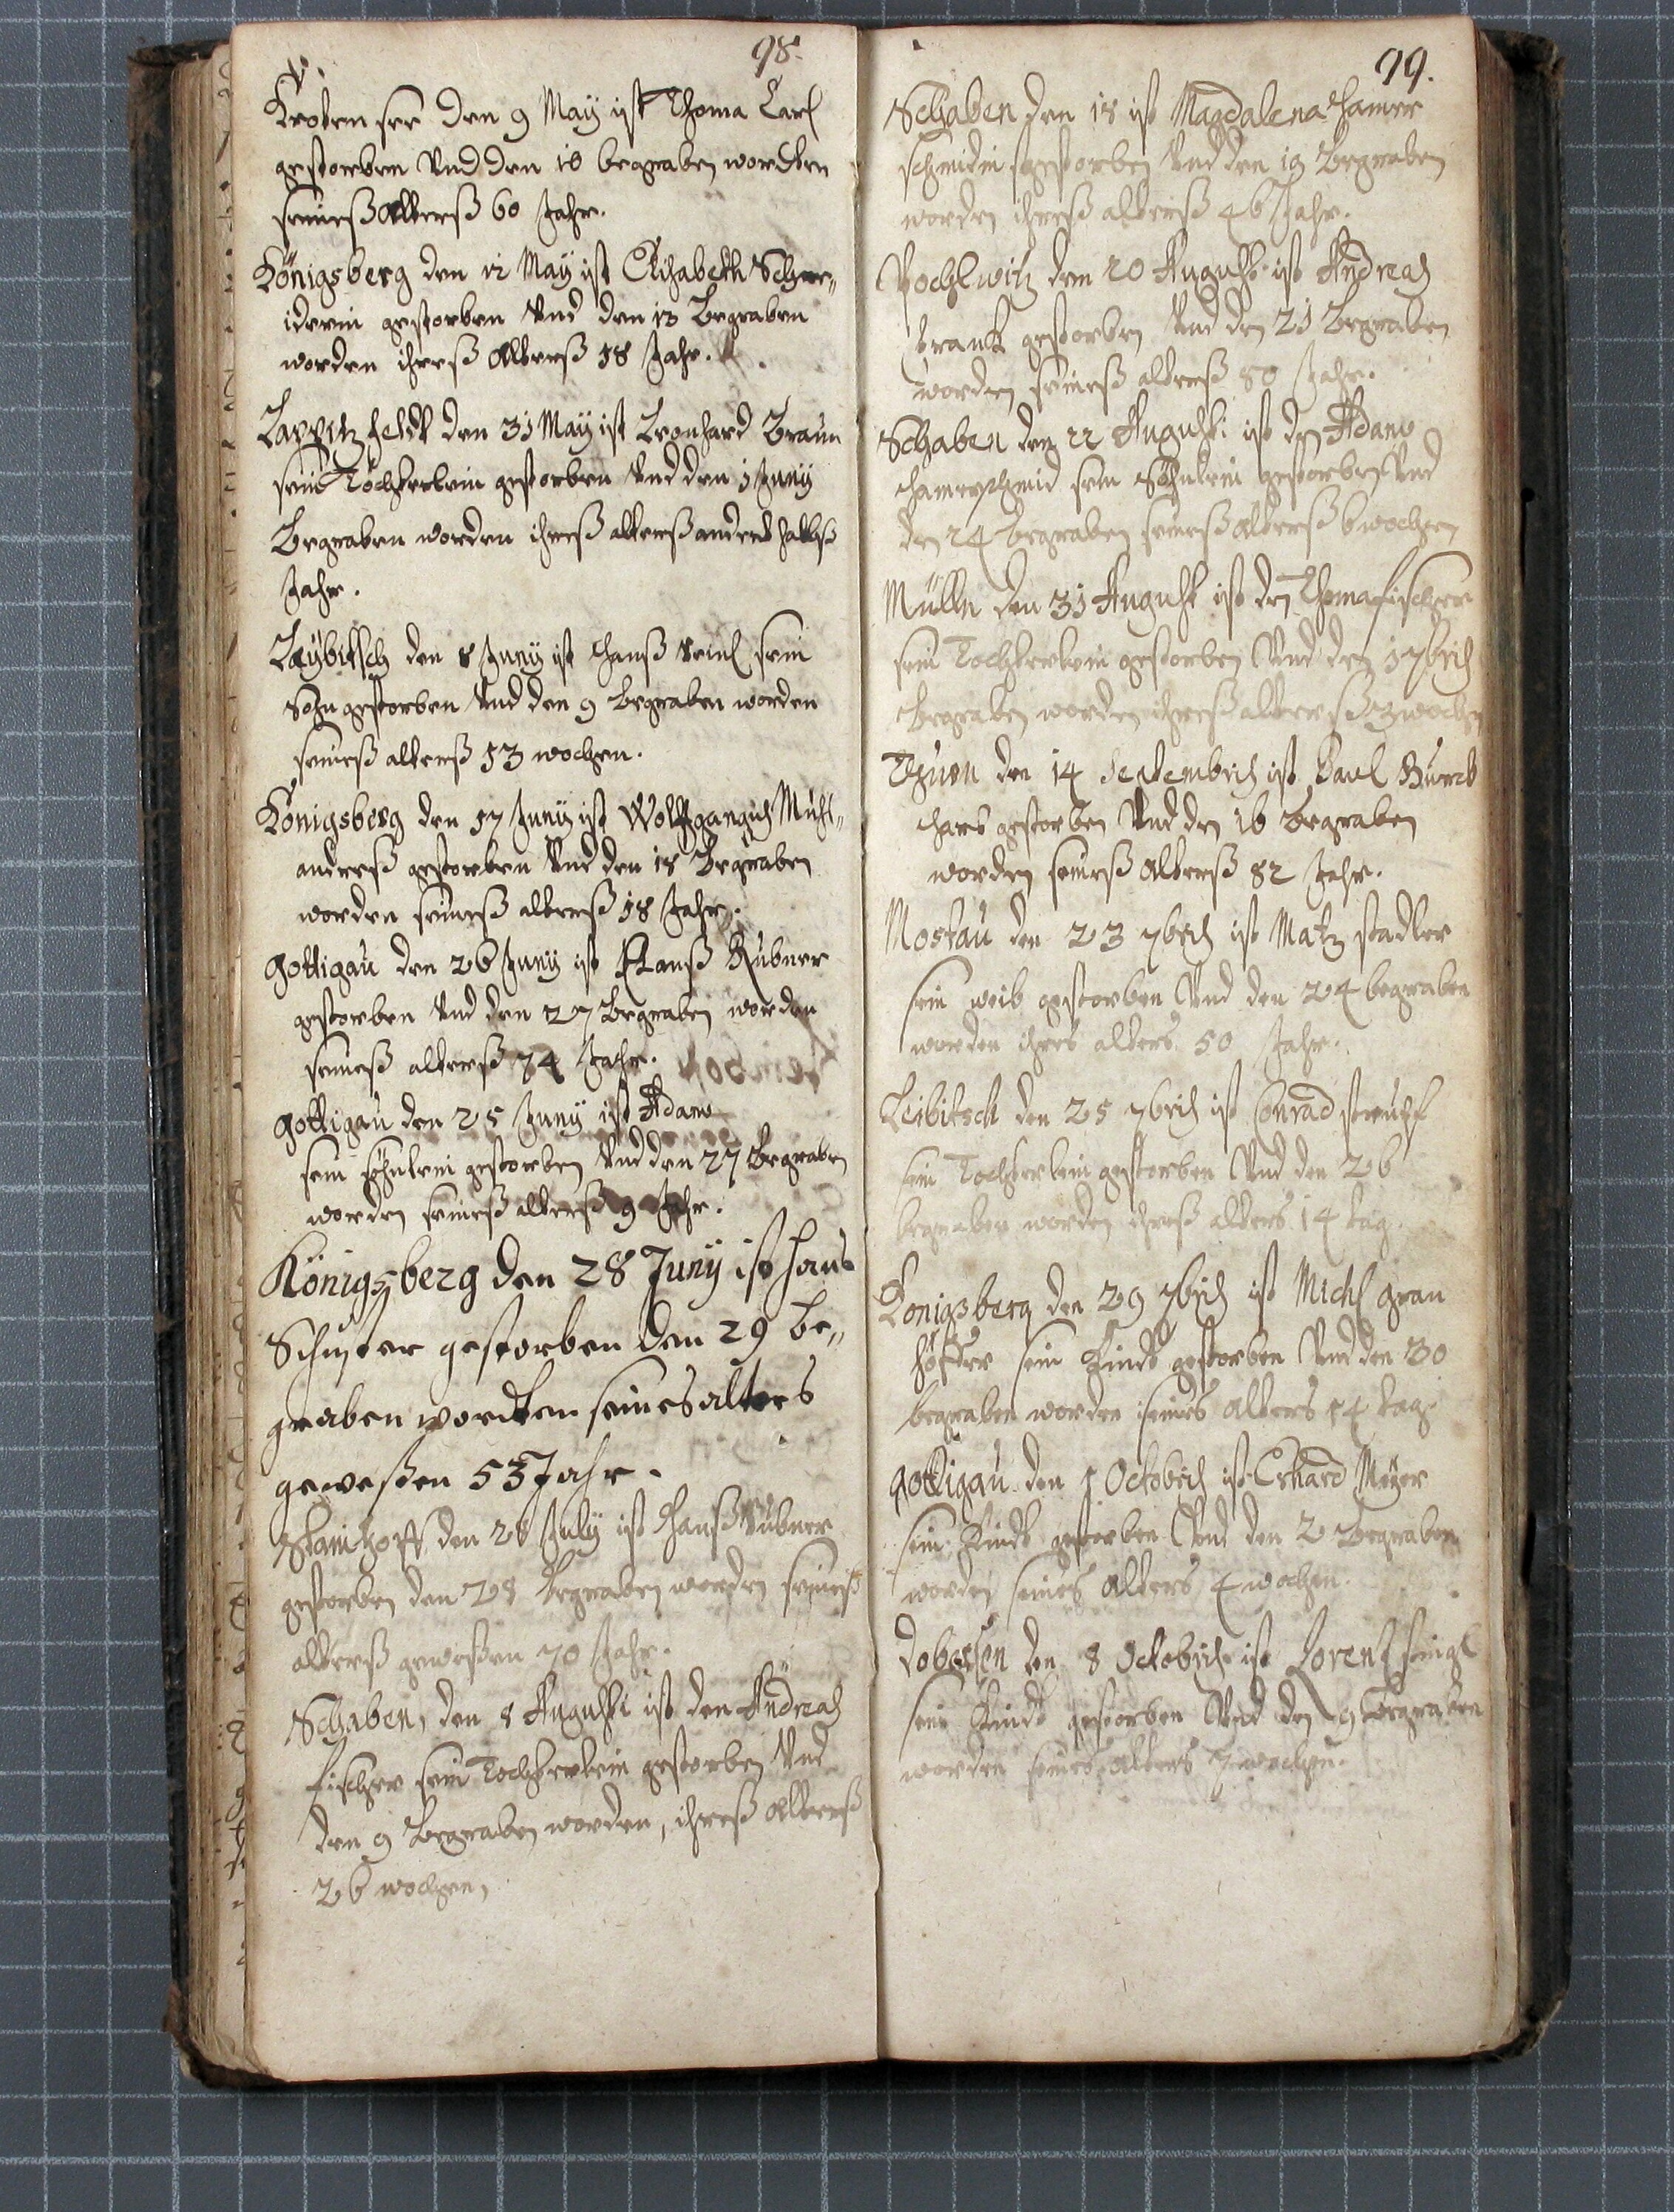 98.
Kroten see den 9 May ist Thoma Carl
gestorben Vnd den 10 begraben wordten
seineß Alterß 60 Jahr.
Königsberg den 12 May ist Elisabeth Schne„
iderin gestorben Vnd den 13 Begraben
worden ihreß Alterß 18 Jahr.
den 31 May ist Leonhard Braun
sein Töchterlein gestorben Vnd den 1 Juny
Begraben worden ihreß alterß anderthalbß
Jahr.
Laybitsch den 8 Juny ist Hanß sein
Sohn gestorben Vnd den 9 Begraben worden
seineß alterß 13 wochen.
Königsberg den 17 Juny ist Wolffgangus Muhl„
andreß gestorben Vnd den 18 Begraben
worden seineß alterß 18 Jahr.
Gottigau den 26 Juny ist Hanß Rubner
gestorben Vnd den 27 Begraben worden
seineß alterß 74 Jahr.
Gottigau den 25 Juny ist Adam
sein Söhnlein gestorben Vnd den 27 Begraben
worden seineß alterß 9 Jahr.
Königsberg den 28 Juny ist Hans
Schuster gestorben den 29 be„
graben wordten seines alters
geweßen 53 Jahr.
den 26 July ist Hanß Rubner
gestorben den 28 Begraben worden seineß
alterß geweßen 70 Jahr.
Schaben, den 8 Augusti ist den Andreas
Fischer sein Tochterlein gestorben Vnd
den 9 Begraben worden, ihreß Alterß
26 wochen,
99.
Schaben den 18 ist Magdalena Hamer
schmidin gestorben Vnd den 19 Begraben
worden ihreß alterß 46 Jahr.
Pochlwitz den 20 Augusti ist Andreas
gestorben Vnd den 21 Begraben
worden seineß alterß 80 Jahr.
Schaben den 22 Augusti ist den Adam
Hamerschmid sein Söhnlein gestorben Vnd
den 24 Begraben seineß Alterß 6 wochen
Mülln den 31 Augusti ist den Thoma Fischer
sein Tochterlein gestorben Vnd den 1 7bris
Begraben worden ihreß alterß 3 wochen
Thurn den 14 Septembris ist Paul Burck
hard gestorben Vnd den 16 Begraben
worden seineß Alterß 82 Jahr.
Mostau den 23 7bris ist Matz Stadler
sein weib gestorben Vnd den 24 begraben
worden ihres alters 50 Jahr.
Leibitsch den 25 7bris ist Conrad
sein Tochterlein gestorben Vnd den 26
begraben worden ihreß alters 14 tag.
Königsberg den 29 7bris ist Michl Gran
höffer sein Kindt gestorben Vnd den 30
begraben worden seines Alters 14 tag.
Gottigau den 1 Octobris ist Erhard Meyer
sein Kindt gestorben Vnd den 2 Begraben
worden seines Alters 4 wochen.
Dobassen den 8 Octobris ist Lorentz
sein Kindt gestorben Vnd den 9 Begraben
worden seines Alters 7 wochen.